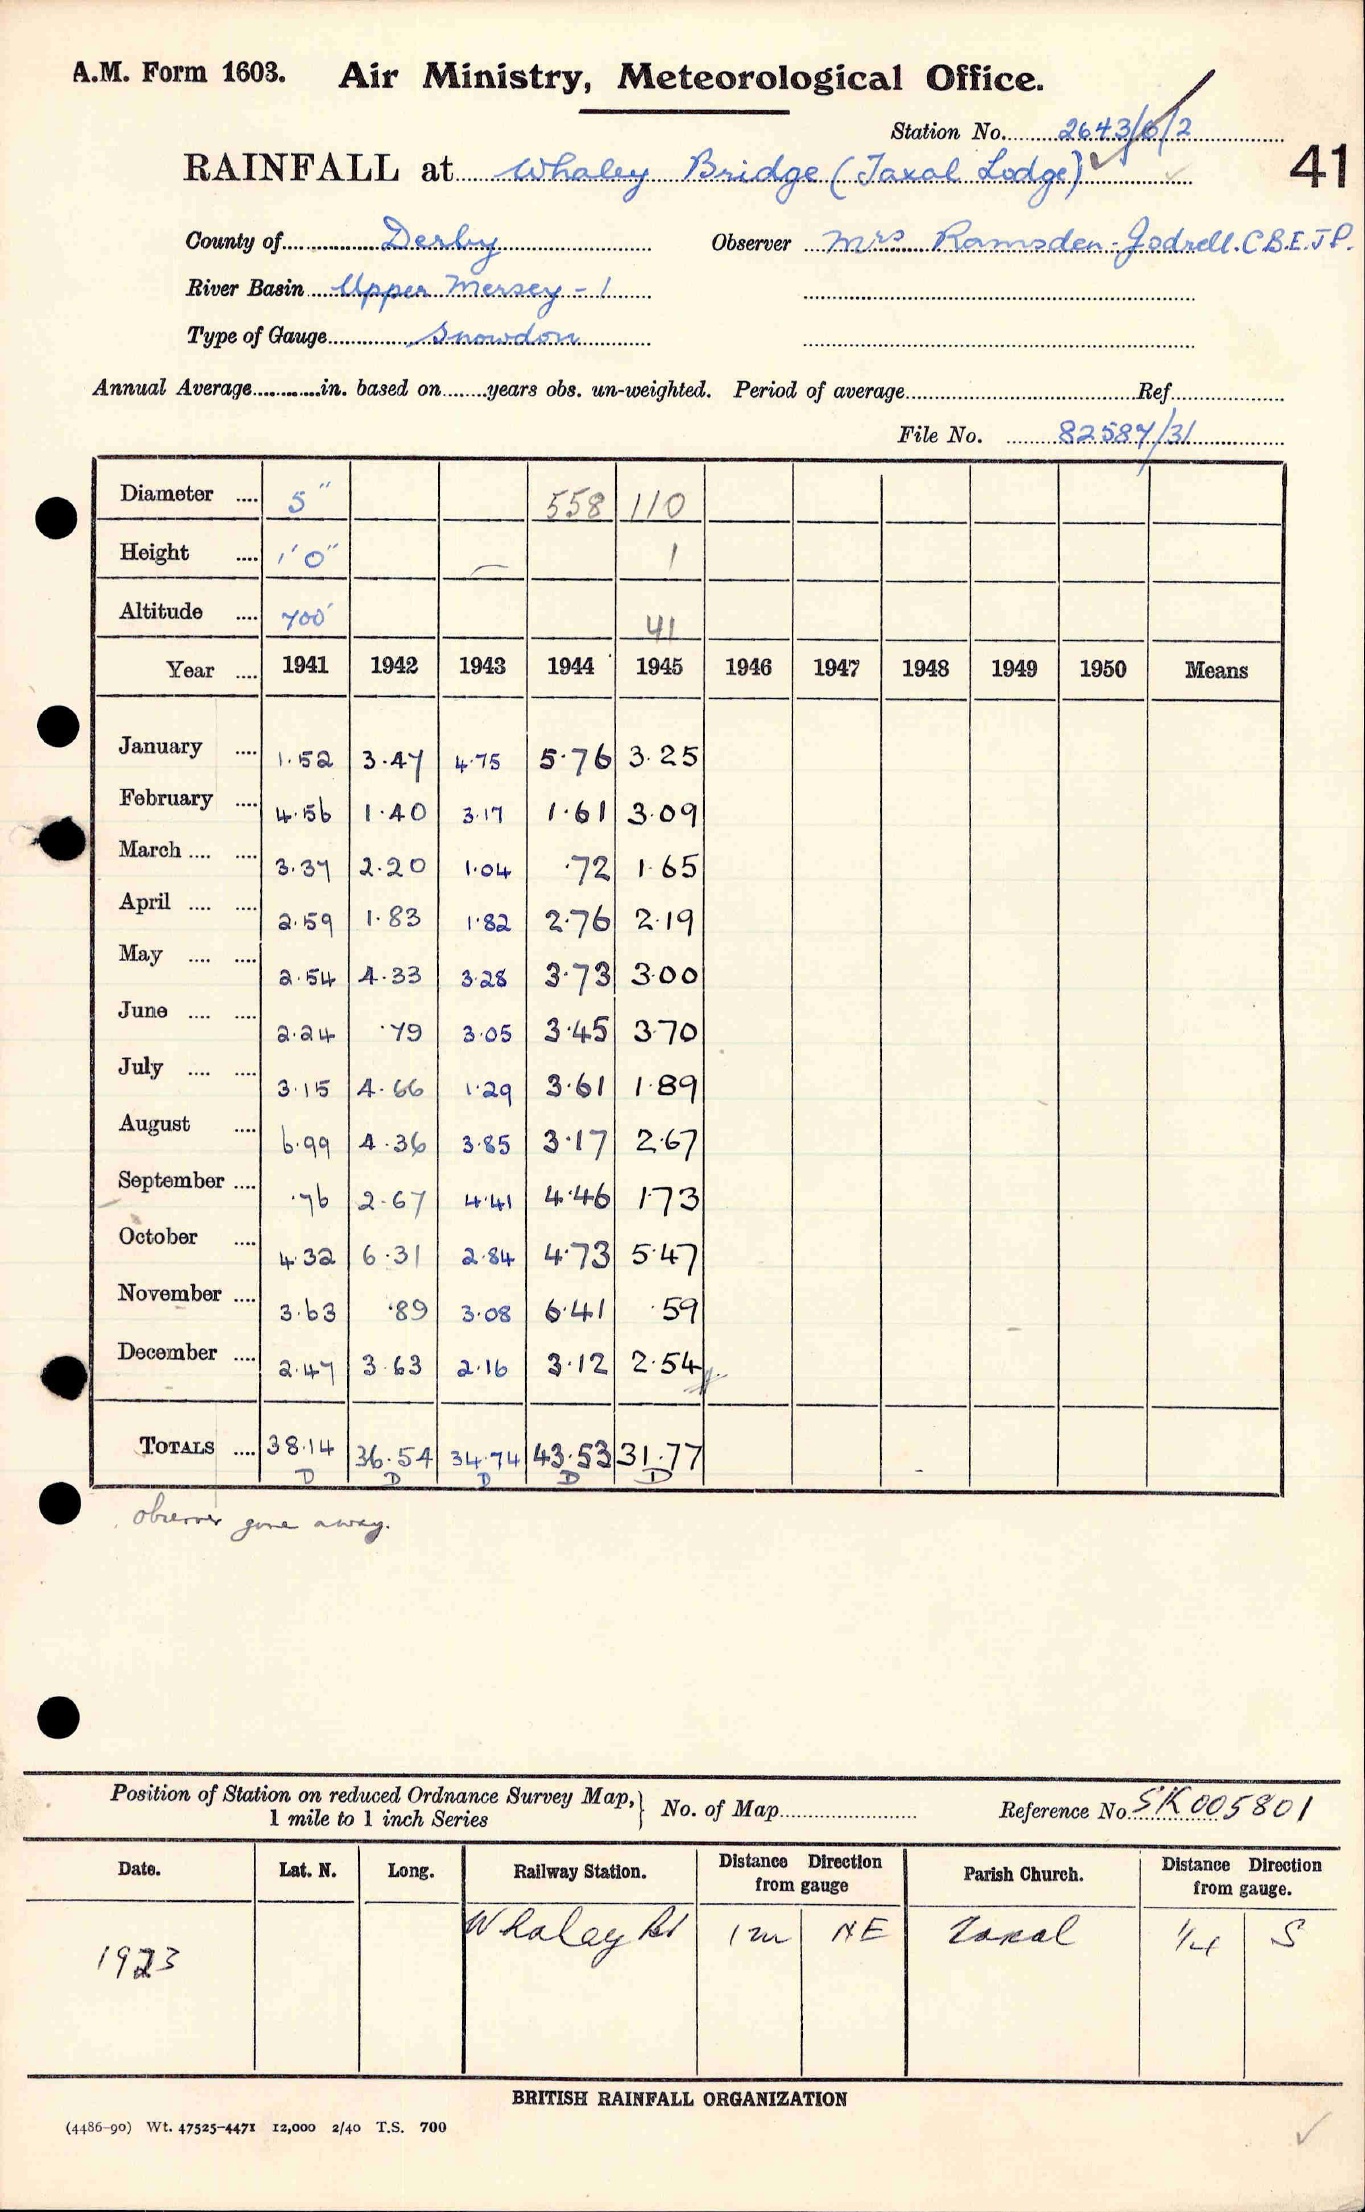 A.M. Form 1603. Air Ministry, Meteorological Office.
Station No. 2643/6/2
RAINFALL at Whaley Bridge (Taxal Lodge) 41
County of Derby Observer Mrs Ramsden-Jodrell. C.B.E. J.P.
River Basin Upper Mersey - 1
Type of Gauge Snowdon
Annual Average in. based on years obs. un-weighted. Period of average Ref.
File No. 82587/31
Diameter 5" 558 110
Height 1'0" 1
Altitude 700' 41
Year 1941 1942 1943 1944 1945 1946 1947 1948 1949 1950 Means
January 1.52 3.47 4.75 5.76 3.25
February 4.56 1.40 3.17 1.61 3.09
March 3.37 2.20 1.04 .72 1.65
April 2.59 1.83 1.82 2.76 2.19
May 2.54 4.33 3.28 3.73 3.00
June 2.24 .79 3.05 3.45 3.70
July 3.15 4.66 1.29 3.61 1.89
August 6.99 4.36 3.85 3.17 2.67
September .76 2.67 4.41 4.46 1.73
October 4.32 6.31 2.84 4.73 5.47
November 3.63 .89 3.08 6.41 .59
December 2.47 3.63 2.16 3.12 2.54
TOTALS 38.14 36.54 34.74 43.53 31.77
D D D D D
observer gone away.
Position of Station on reduced Ordnance Survey Map, } No. of Map Reference No. SK005801
1 mile to 1 inch Series
Date. Lat. N. Long. Railway Station. Distance Direction from gauge Parish Church. Distance Direction from gauge.
1923 Whaley Bd 1m NE Taxal 1/4 S
BRITISH RAINFALL ORGANIZATION
(4486-90) Wt. 47525-4471 12,000 2/40 T.S. 700